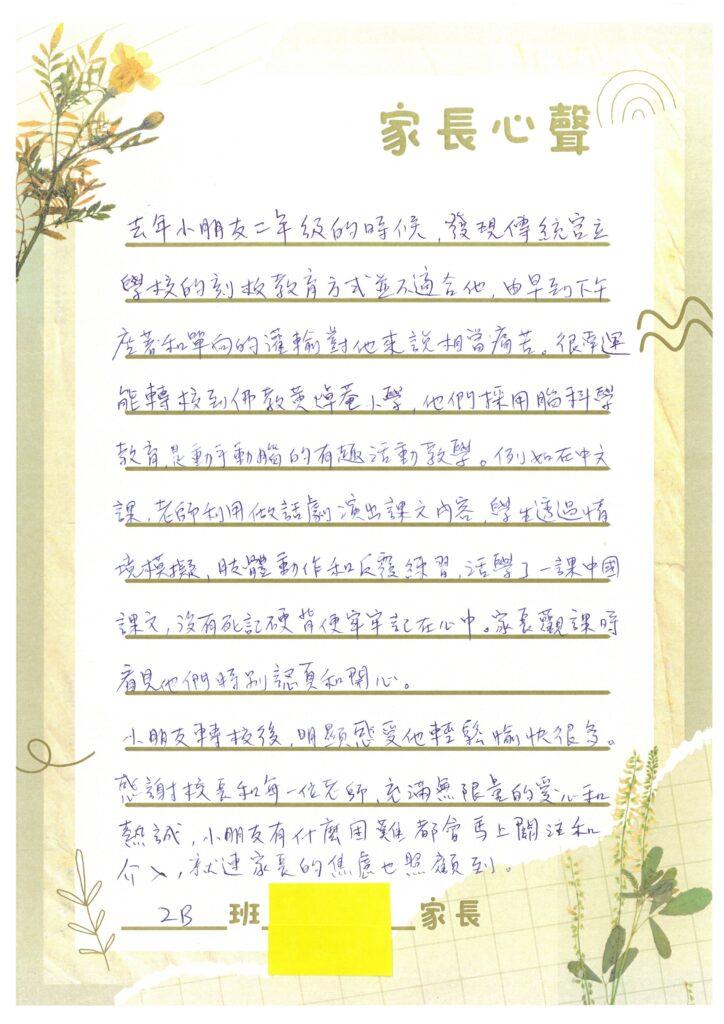 家長心聲
去年小朋友二年級的時候，發現傳統官立
學校的刻板教育方式並不適合他，由早到下午
座著和單向的灌輸對他來說相當痛苦。很幸運
能轉校到佛教黃焯菴小學，他們採用腦科學
教育，是動手動腦的有趣活動教學。例如在中文
課，老師利用做話劇演出課文內容，學生透過情
境模擬，肢體動作和反覆練習，活學了一課中國
課文，沒有死記硬背便牢牢記在心中。家長觀課時
看見他們特別認真和開心。
小朋友轉校後，明顯感受他輕鬆愉快很多。
感謝校長和每一位老師，充滿無限量的愛心和
熱誠，小朋友有什麼困難都會馬上關注和
介入，就連家長的焦慮也照顧到。
2B班 家長